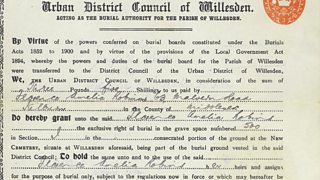 Urban District Council of Willesden.
ACTING AS THE BURIAL AUTHORITY FOR THE PARISH OF WILLESDEN.
By Virtue of the powers conferred on burial boards constituted under the Burials
Acts 1852 to 1900 and by virtue of the provisions of the Local Government Act
1894, whereby the powers and duties of the burial board for the Parish of Willesden
were transferred to the District Council of the Urban District of Willesden,
We, THE URBAN DISTRICT COUNCIL OF WILLESDEN, in consideration of the sum of
Three Pounds five Shillings to us paid by
Florence Amelia Road
in the County of Middlesex
Do hereby grant unto the said Florence Amelia
the exclusive right of burial in the grave space numbered 500
in Section of the consecrated portion of the ground at the New
CEMETERY, situate at WILLESDEN aforesaid, being part of the burial ground vested in the
said District Council; To hold the same unto and to the use of the said
Florence Amelia heirs and assigns
for the purpose of burial, subject to the regulations now in force or which may hereafter be